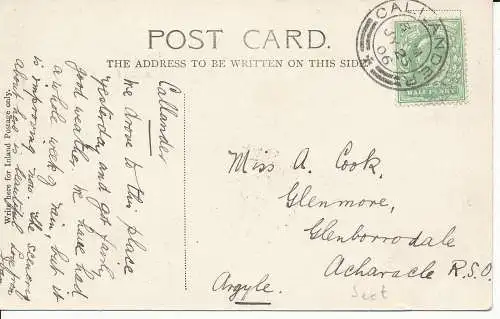 POST CARD.
THE ADDRESS TO BE WRITTEN ON THIS SIDE
CALLANDER
06
HALFPENNY
Callander
We drove to this place
yesterday, and got fairly
good weather. We have had
a whole week of rain, but it
is improving now. The scenery
about here is beautiful. Love from
Write here for Inland Postage only.
Miss A. Cook.
Glenmore,
Glenborrodale
Acharacle R.S.O.
Argyle.